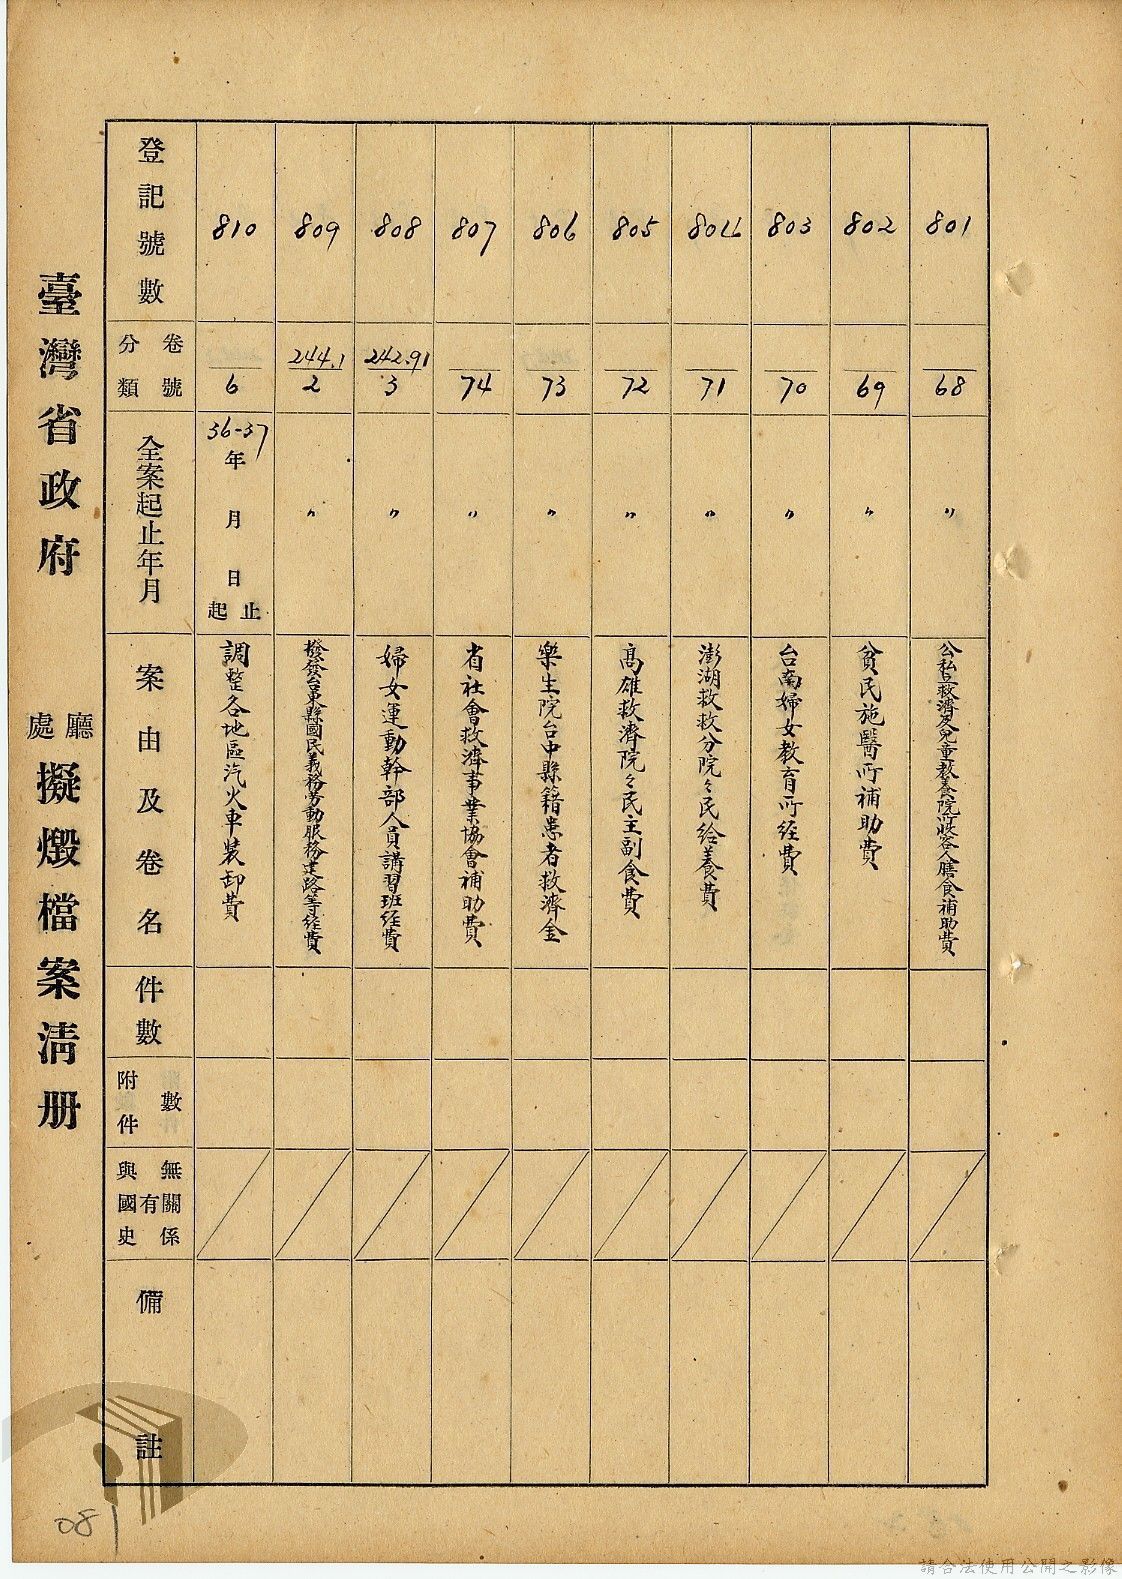 臺灣省政府
廳
處
擬燬檔案清册
登記號數
卷號
分類
全案起止年月
案由及卷名
件數
附件
數
與國史
有
無關係
備註
810
6
36-37
年
月
日
起
止
調整各地區汽火車裝卸費
809
244.1
2
〃
撥發台東縣國民義務勞動服務建路等經費
808
242.91
3
〃
婦女運動幹部人員講習班經費
807
74
〃
省社會救濟事業協會補助費
806
73
〃
樂生院台中縣籍患者救濟金
805
72
〃
高雄救濟院々民主副食費
804
71
〃
澎湖救救分院々民給養費
803
70
〃
台南婦女教育所經費
802
69
〃
貧民施醫所補助費
801
68
〃
公私立救濟及兒童教養院所收容人膳食補助費
081
請合法使用公開之影像